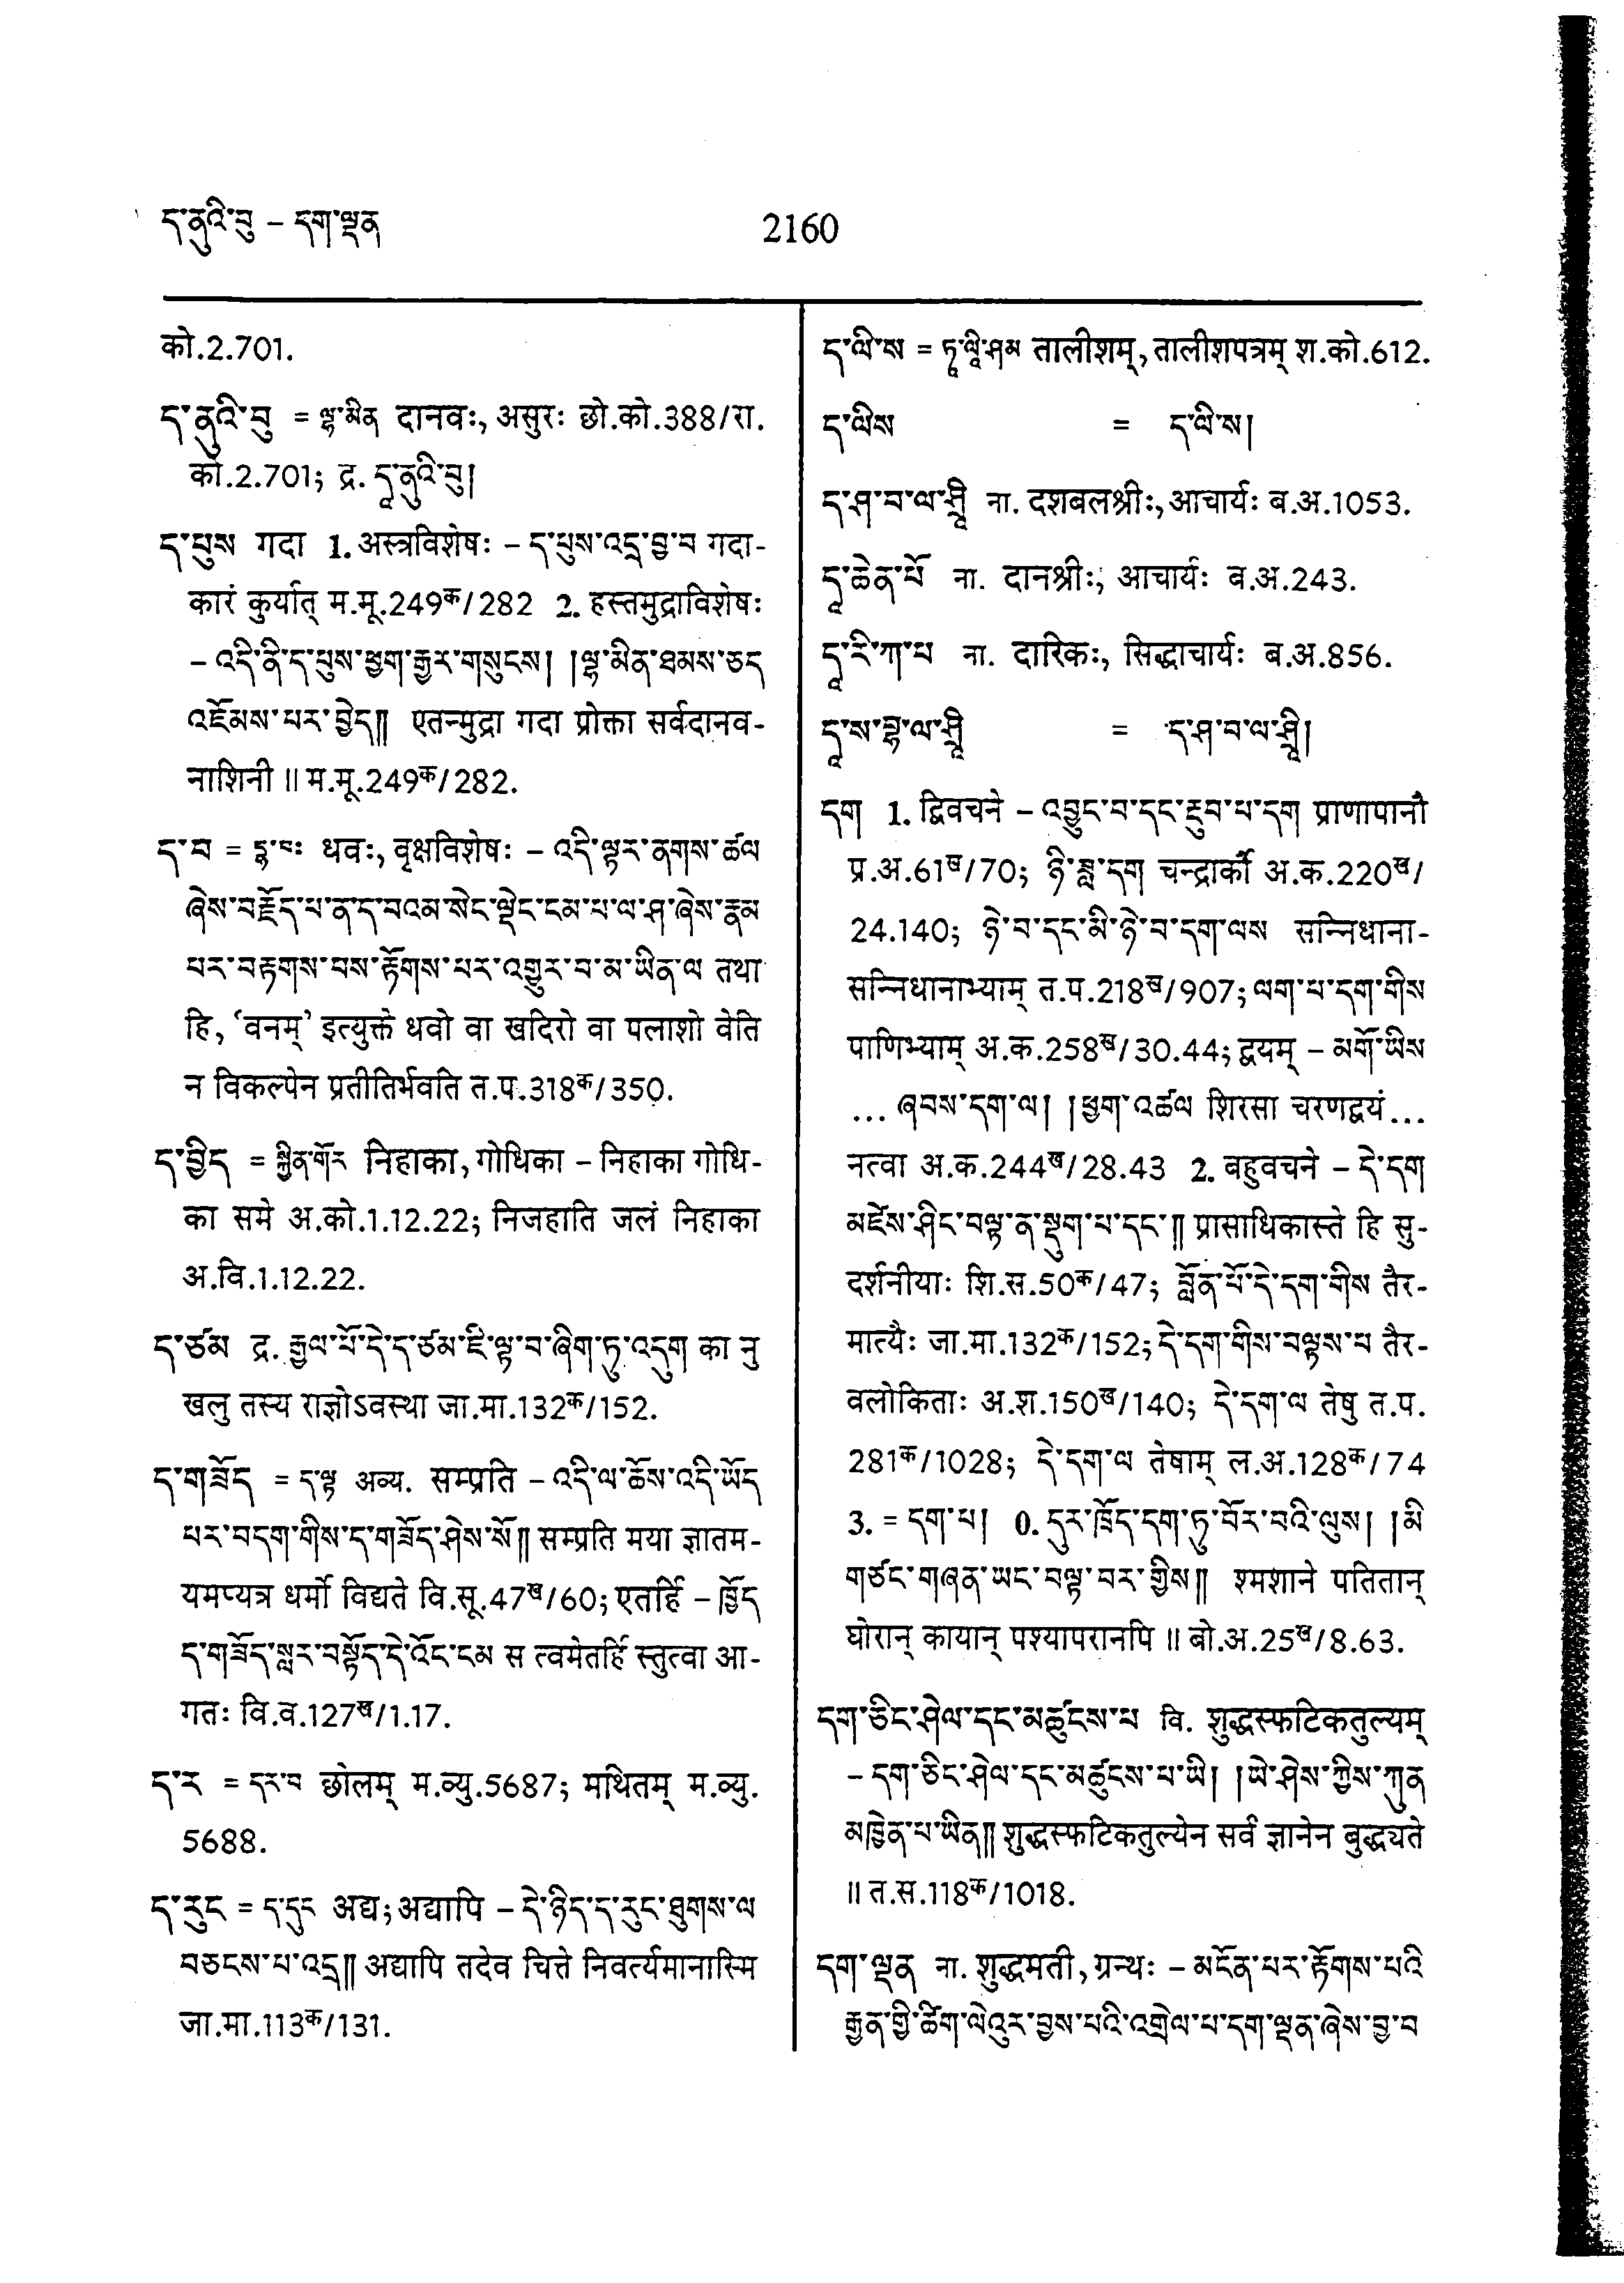 ད་ནུའི་བུ – དག་ལྡན
2160
को.2.701.
ད་ནུའི་བུ = ལྷ་མིན दानवः, असुरः छो.को.388/रा.
को.2.701; द्र. དཱ་ནུའི་བུ།
ད་པུས गदा 1. अस्त्रविशेषः – ད་པུས་འདྲ་བྱ་བ गदा-
कारं कुर्यात् म.मू.249क/282 2. हस्तमुद्राविशेषः
– འདི་ནི་ད་པུས་ཕྱག་རྒྱར་གསུངས། །ལྷ་མིན་ཐམས་ཅད
འཇོམས་པར་བྱེད༎ एतन्मुद्रा गदा प्रोक्ता सर्वदानव-
नाशिनी ॥ म.मू.249क/282.
ད་བ = དྷ་བཿ धवः, वृक्षविशेषः – འདི་ལྟར་ནགས་ཚལ
ཞེས་བརྗོད་པ་ན་ད་བའམ་སེང་ལྡེང་ངམ་པ་ལ་ཤ་ཞེས་རྣམ
པར་བརྟགས་བས་རྟོགས་པར་འགྱུར་བ་མ་ཡིན་ལ तथा
हि, ‘वनम्’ इत्युक्ते धवो वा खदिरो वा पलाशो वेति
न विकल्पेन प्रतीतिर्भवति त.प.318क/350.
ད་བྱིད = སྐྱིན་གོར निहाका, गोधिका – निहाका गोधि-
का समे अ.को.1.12.22; निजहाति जलं निहाका
अ.वि.1.12.22.
ད་ཙམ द्र. རྒྱལ་པོ་དེ་ད་ཙམ་ཇི་ལྟ་བ་ཞིག་ཏུ་འདུག का नु
खलु तस्य राज्ञोऽवस्था जा.मा.132क/152.
ད་གཟོད = ད་ལྟ अव्य. सम्प्रति – འདི་ལ་ཆོས་འདི་ཡོད
པར་བདག་གིས་ད་གཟོད་ཤེས་སོ༎ सम्प्रति मया ज्ञातम-
यमप्यत्र धर्मो विद्यते वि.सू.47ख/60; एतर्हि – ཁྱོད
ད་གཟོད་སླར་བསྟོད་དེ་འོང་ངམ स त्वमेतर्हि स्तुत्वा आ-
गतः वि.व.127ख/1.17.
ད་ར = དར་བ छोलम् म.व्यु.5687; मथितम् म.व्यु.
5688.
ད་རུང = ད་དུང अद्य; अद्यापि – དེ་ཉིད་ད་རུང་ཐུགས་ལ
བཅངས་པ་འདྲ༎ अद्यापि तदेव चित्ते निवर्त्यमानास्मि
जा.मा.113क/131.
ད་ལི་ས = ཏཱ་ལཱི་ཤམ तालीशम्, तालीशपत्रम् श.को.612.
ད་ལིས = ད་ལི་ས།
ད་ཤ་བ་ལ་ཤྲཱི ना. दशबलश्रीः, आचार्यः ब.अ.1053.
དཱ་ཆེན་པོ ना. दानश्रीः, आचार्यः ब.अ.243.
དཱ་རི་ཀ་པ ना. दारिकः, सिद्धाचार्यः ब.अ.856.
དཱ་ས་བྷ་ལ་ཤྲཱི = ད་ཤ་བ་ལ་ཤྲཱི།
དག 1. द्विवचने – འབྱུང་བ་དང་རྔུབ་པ་དག प्राणापानौ
प्र.अ.61ख/70; ཉི་ཟླ་དག चन्द्रार्कौ अ.क.220ख/
24.140; ཉེ་བ་དང་མི་ཉེ་བ་དག་ལས सन्निधाना-
सन्निधानाभ्याम् त.प.218ख/907; ལག་པ་དག་གིས
पाणिभ्याम् अ.क.258ख/30.44; द्वयम् – མགོ་ཡིས
... ཞབས་དག་ལ། །ཕྱག་འཚལ शिरसा चरणद्वयं...
नत्वा अ.क.244ख/28.43 2. बहुवचने – དེ་དག
མཛེས་ཤིང་བལྟ་ན་སྡུག་པ་དང་༎ प्रासाधिकास्ते हि सु-
दर्शनीयाः शि.स.50क/47; བློན་པོ་དེ་དག་གིས तैर-
मात्यैः जा.मा.132क/152; དེ་དག་གིས་བལྟས་པ तैर-
वलोकिताः अ.श.150ख/140; དེ་དག་ལ तेषु त.प.
281क/1028; དེ་དག་ལ तेषाम् ल.अ.128क/74
3. = དག་པ། 0. དུར་ཁྲོད་དག་ཏུ་བོར་བའི་ལུས། །མི
གཙང་གཞན་ཡང་བལྟ་བར་གྱིས༎ श्मशाने पतितान्
घोरान् कायान् पश्यापरानपि ॥ बो.अ.25ख/8.63.
དག་ཅིང་ཤེལ་དང་མཚུངས་པ वि. शुद्धस्फटिकतुल्यम्
– དག་ཅིང་ཤེལ་དང་མཚུངས་པ་ཡི། །ཡེ་ཤེས་ཀྱིས་ཀུན
མཁྱེན་པ་ཡིན༎ शुद्धस्फटिकतुल्येन सर्वं ज्ञानेन बुद्ध्यते
॥ त.स.118क/1018.
དག་ལྡན ना. शुद्धमती, ग्रन्थः – མངོན་པར་རྟོགས་པའི
རྒྱན་གྱི་ཚིག་ལེའུར་བྱས་པའི་འགྲེལ་པ་དག་ལྡན་ཞེས་བྱ་བ